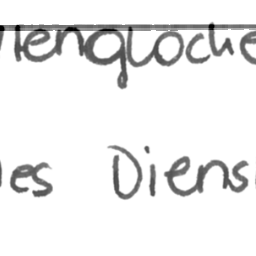 englocke
es Diens